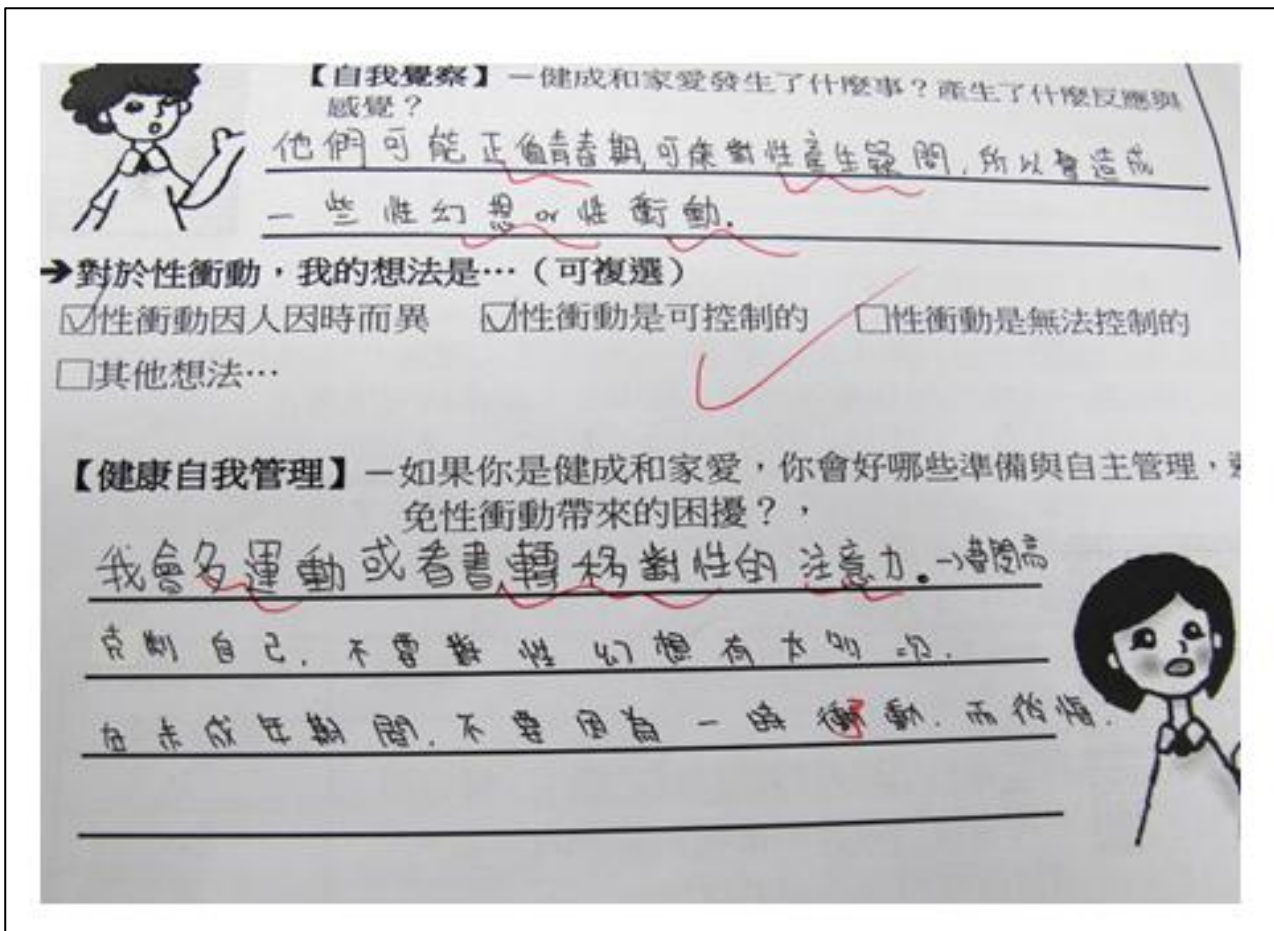 【自我覺察】－健成和家愛發生了什麼事？產生了什麼反應與
感覺？
他們可能正值青春期,可能對性產生疑問,所以會造成
一些性幻想 or 性衝動.
➔對於性衝動，我的想法是…（可複選）
☑性衝動因人因時而異 ☑性衝動是可控制的 □性衝動是無法控制的
□其他想法…
【健康自我管理】－如果你是健成和家愛，你會好哪些準備與自主管理，
免性衝動帶來的困擾？，
我會多運動或看書轉移對性的注意力。
自己.不要對性幻想有太多次.
在未成年期間.不要因為一時衝動.而後悔.